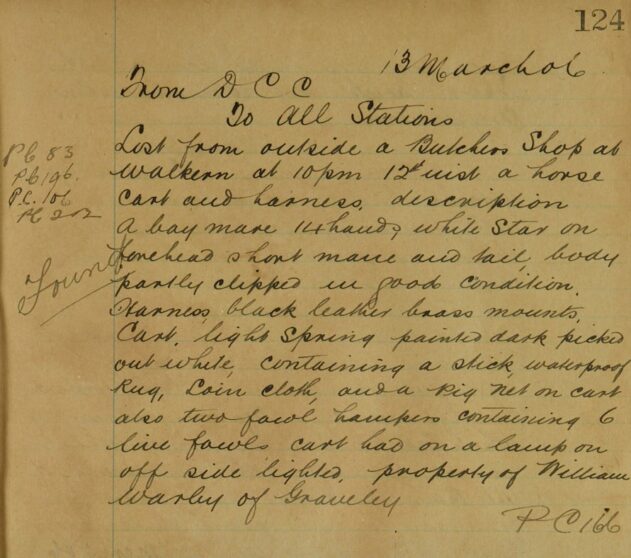 124
13 March 06
From D C C
To All Stations
Lost from outside a Butchers Shop at
Walkern at 10pm 12th inst a horse
cart and harness, description
a bay mare 14 hands, white Star on
forehead short mane and tail, body
partly clipped in good condition.
Harness, black leather brass mounts,
Cart, light Spring painted dark picked
out white, containing a stick, waterproof
Rug, Loin cloth, and a Pig Net on cart
also two fowl hampers containing 6
live fowls cart had on a lamp on
off side lighted, property of William
Warby of Graveley
PC 166
PC 83
PC 196.
P.C. 106
PC 202
Found